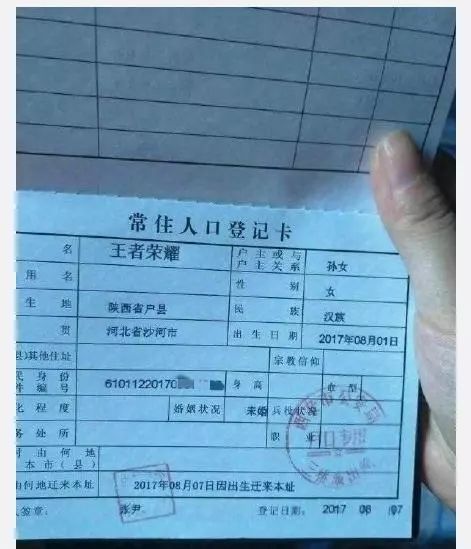 常住人口登记卡
名 王者荣耀 户主或与户主关系 孙女
用名 性别 女
生地 陕西省户县 民族 汉族
贯 河北省沙河市 出生日期 2017年08月01日
县)其他住址 宗教信仰
民身份件编号 6101122017 身高 血型
化程度 婚姻状况 未婚 兵役状况
务处所 职业
由何地本市(县)
由何地迁来本址 2017年08月07日因出生迁来本址
人签章: 张尹 登记日期: 2017 08 07